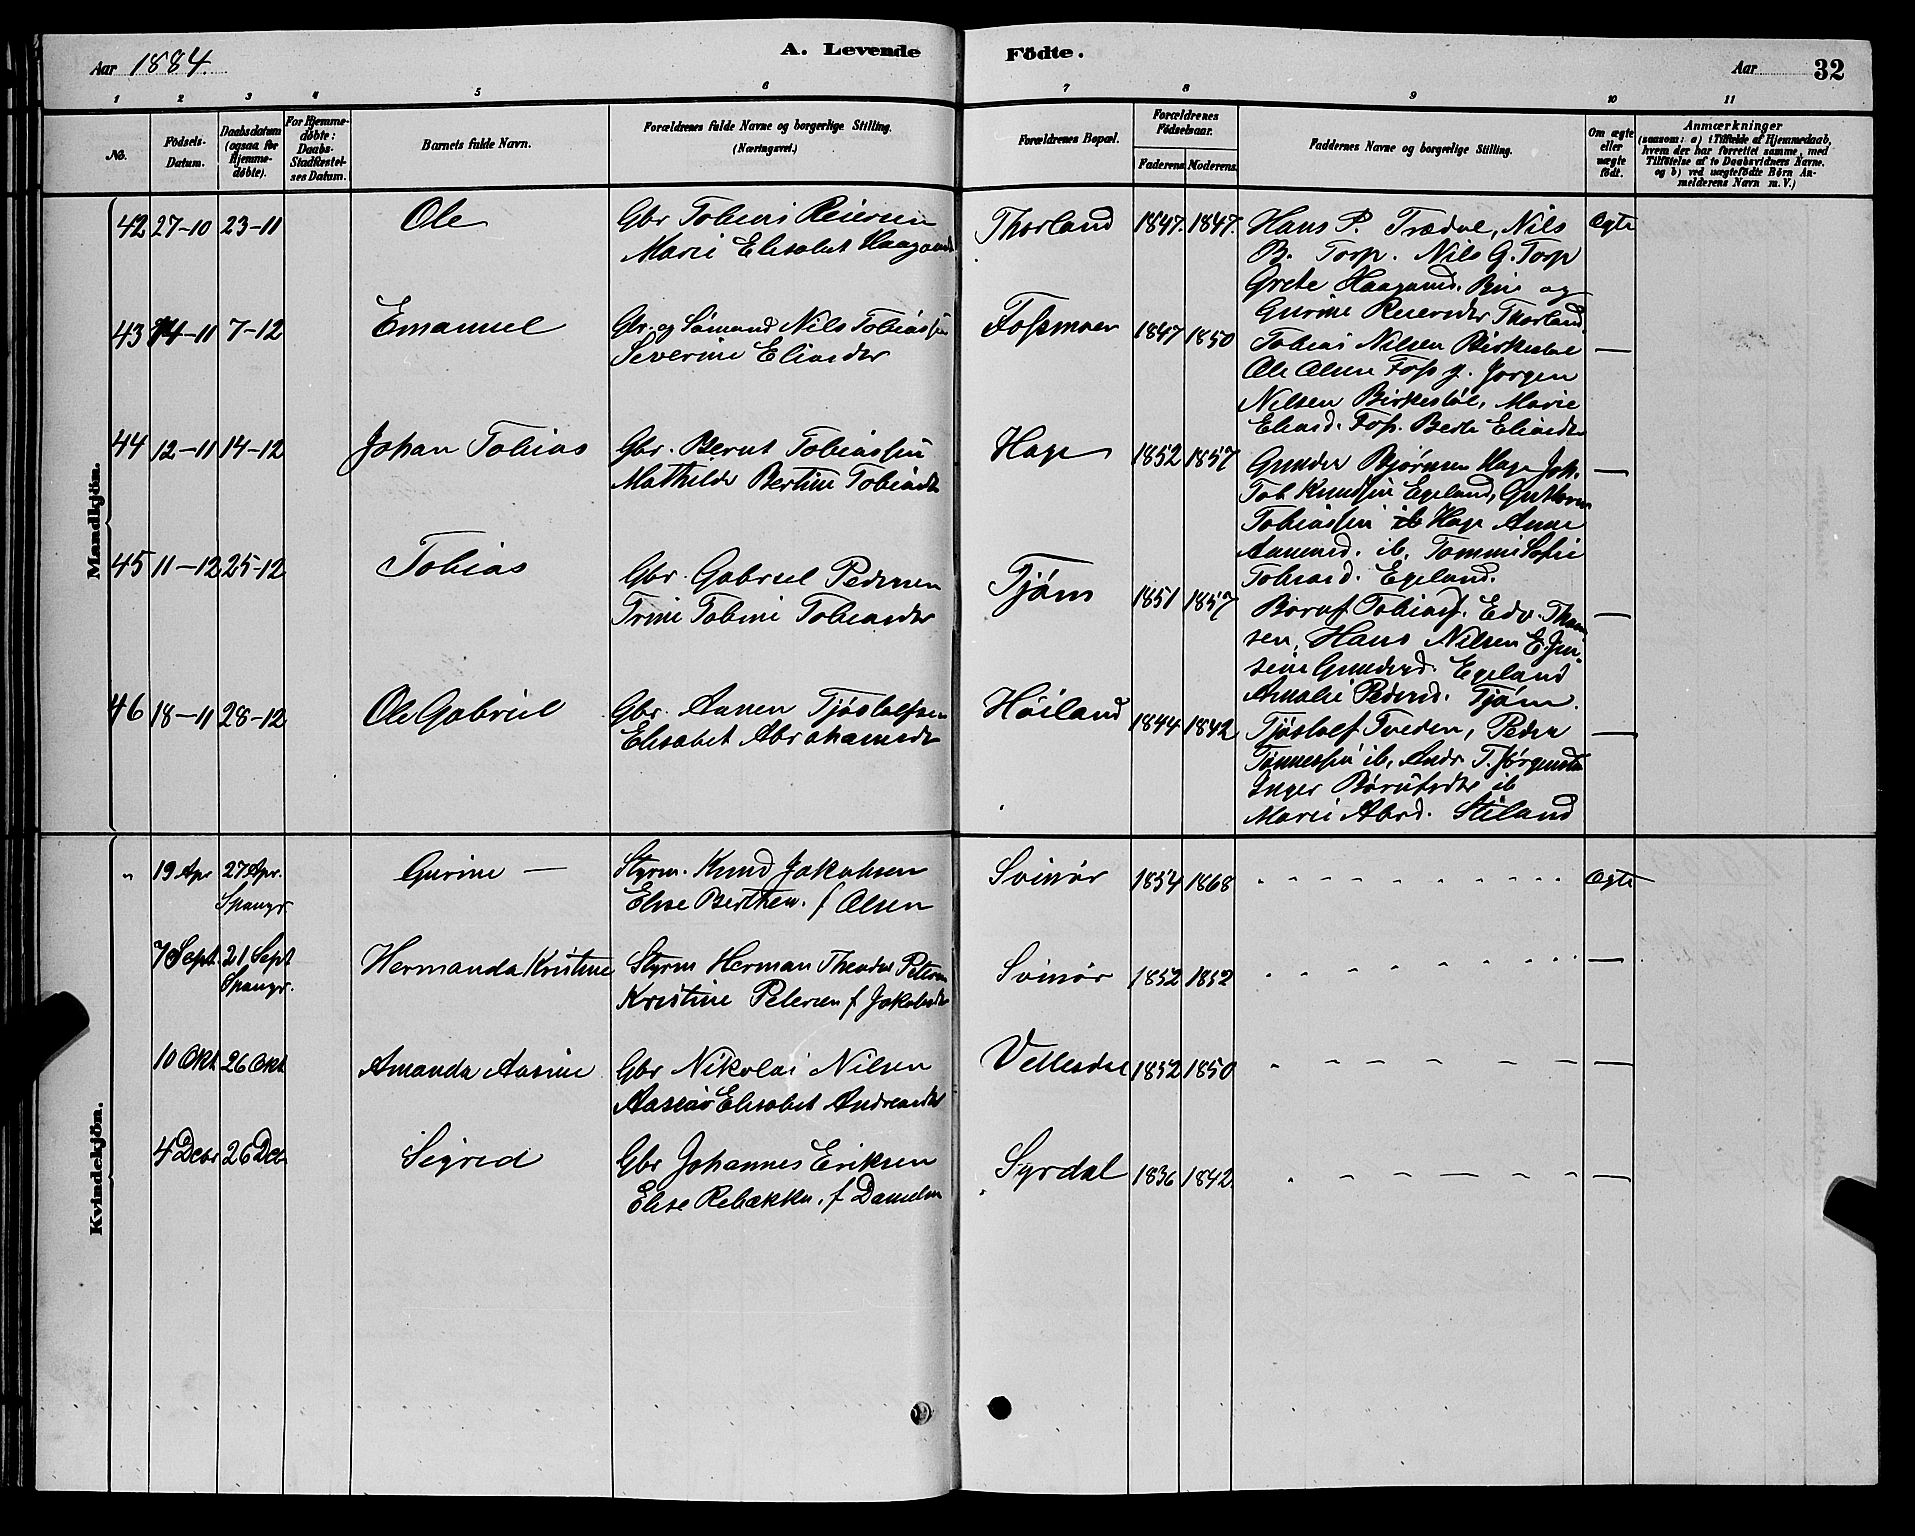 Aar 1884.
A. Levende Födte.
Aar 32
1 2 3 4 5 6 7 8 9 10 11
No.
Födsels-Datum.
Daabsdatum (ogsaa for Hjemme-döbte).
For Hjemme-döbte: Daabs-Stadfæstel-ses Datum.
Barnets fulde Navn.
Forældrenes fulde Navne og borgerlige Stilling. (Næringsvei.)
Forældrenes Bopæl.
Forældrenes Födselsaar.
Faderens. Moderens.
Faddernes Navne og borgerlige Stilling.
Om ægte eller uægte födt.
Anmærkninger
(saasom: a) i Tilfælde af Hjemmedaab,
hvem der har forrettet samme, med
Tilföielse af to Daabsvidners Navne,
og b) ved uægtefödte Börn An-
melderens Navn m. V.)
Mandkjön.
42 27-10 23-11 Ole
Gbr Tobias Reiersen
Marie Elisabet Haagensd
Thorland 1847. 1847.
Hans P. Trædal, Nils
B. Torp. Nils G. Torp
Grete Haagensd. Bue og
Gurine Reiersdtr Thorland
Ægte
43 14-11 7-12 Emanuel
Gbr. og Sömand Nils Tobiassen
Severine Eliasdtr
Fossmoen 1847 1850
Tobias Nilsen Birkestøl
Ole Olsen Foss g. Jørgen
Nilsen Birkestøl, Marie
Eliasd. Foss. Berte Eliasdtr
—
44 12-11 14-12 Johan Tobias
Gbr. Bernt Tobiassen
Mathilde Bertine Tobiasdtr
Hage 1852 1857
Gunder Bjørnsen Hage Joh.
Tob Knudsen Egeland, Guttorm
Tobiassen ib Hage Anne
Aanensd. ib. Tomine Sofie
Tobiasd. Egeland.
—
45 11-12 25-12 Tobias
Gbr. Gabriel Pedersen
Trine Tobine Tobiasdtr
Tjøm 1851 1857
Tobiass. Edv. Thom
sen, Hans Nilsen
Gundersd. Egeland
Amalie Pedersd. Tjøm.
—
46 18-11 28-12 Ole Gabriel
Gbr. Aanen Tjøstolfsen
Elisabet Abrahamsdtr
Höiland 1844 1842
Tjøstolf Tveden, Peder
Tønnessen ib, Andr. T. Jørgensdtr
Inger ib
Marie Abrd. Stiland
—
Kvindekjön.
" 19 Apr 27 Apr. Spangr. Gurine —
Styrm. Knud Jakobsen
Elise Berthen. f Olsen
Svinør 1854 1868
Ægte
7 Sept. 21 Sept Spangr. Hermanda Kristine
Styrm Herman Theodor Petersen
Kristine Petersen f Jakobsdtr
Svinør 1852 1852
—
10 Okt 26 Okt Amanda Aasine
Gbr Nikolai Nilsen
Elisabet Andreasdtr
Vellesdal 1852 1850
—
4 Decbr 26 Dec Sigred
Gbr Johannes Eriksen
Elise Rebækka. f Danielsen
Syrdal 1836 1842
—